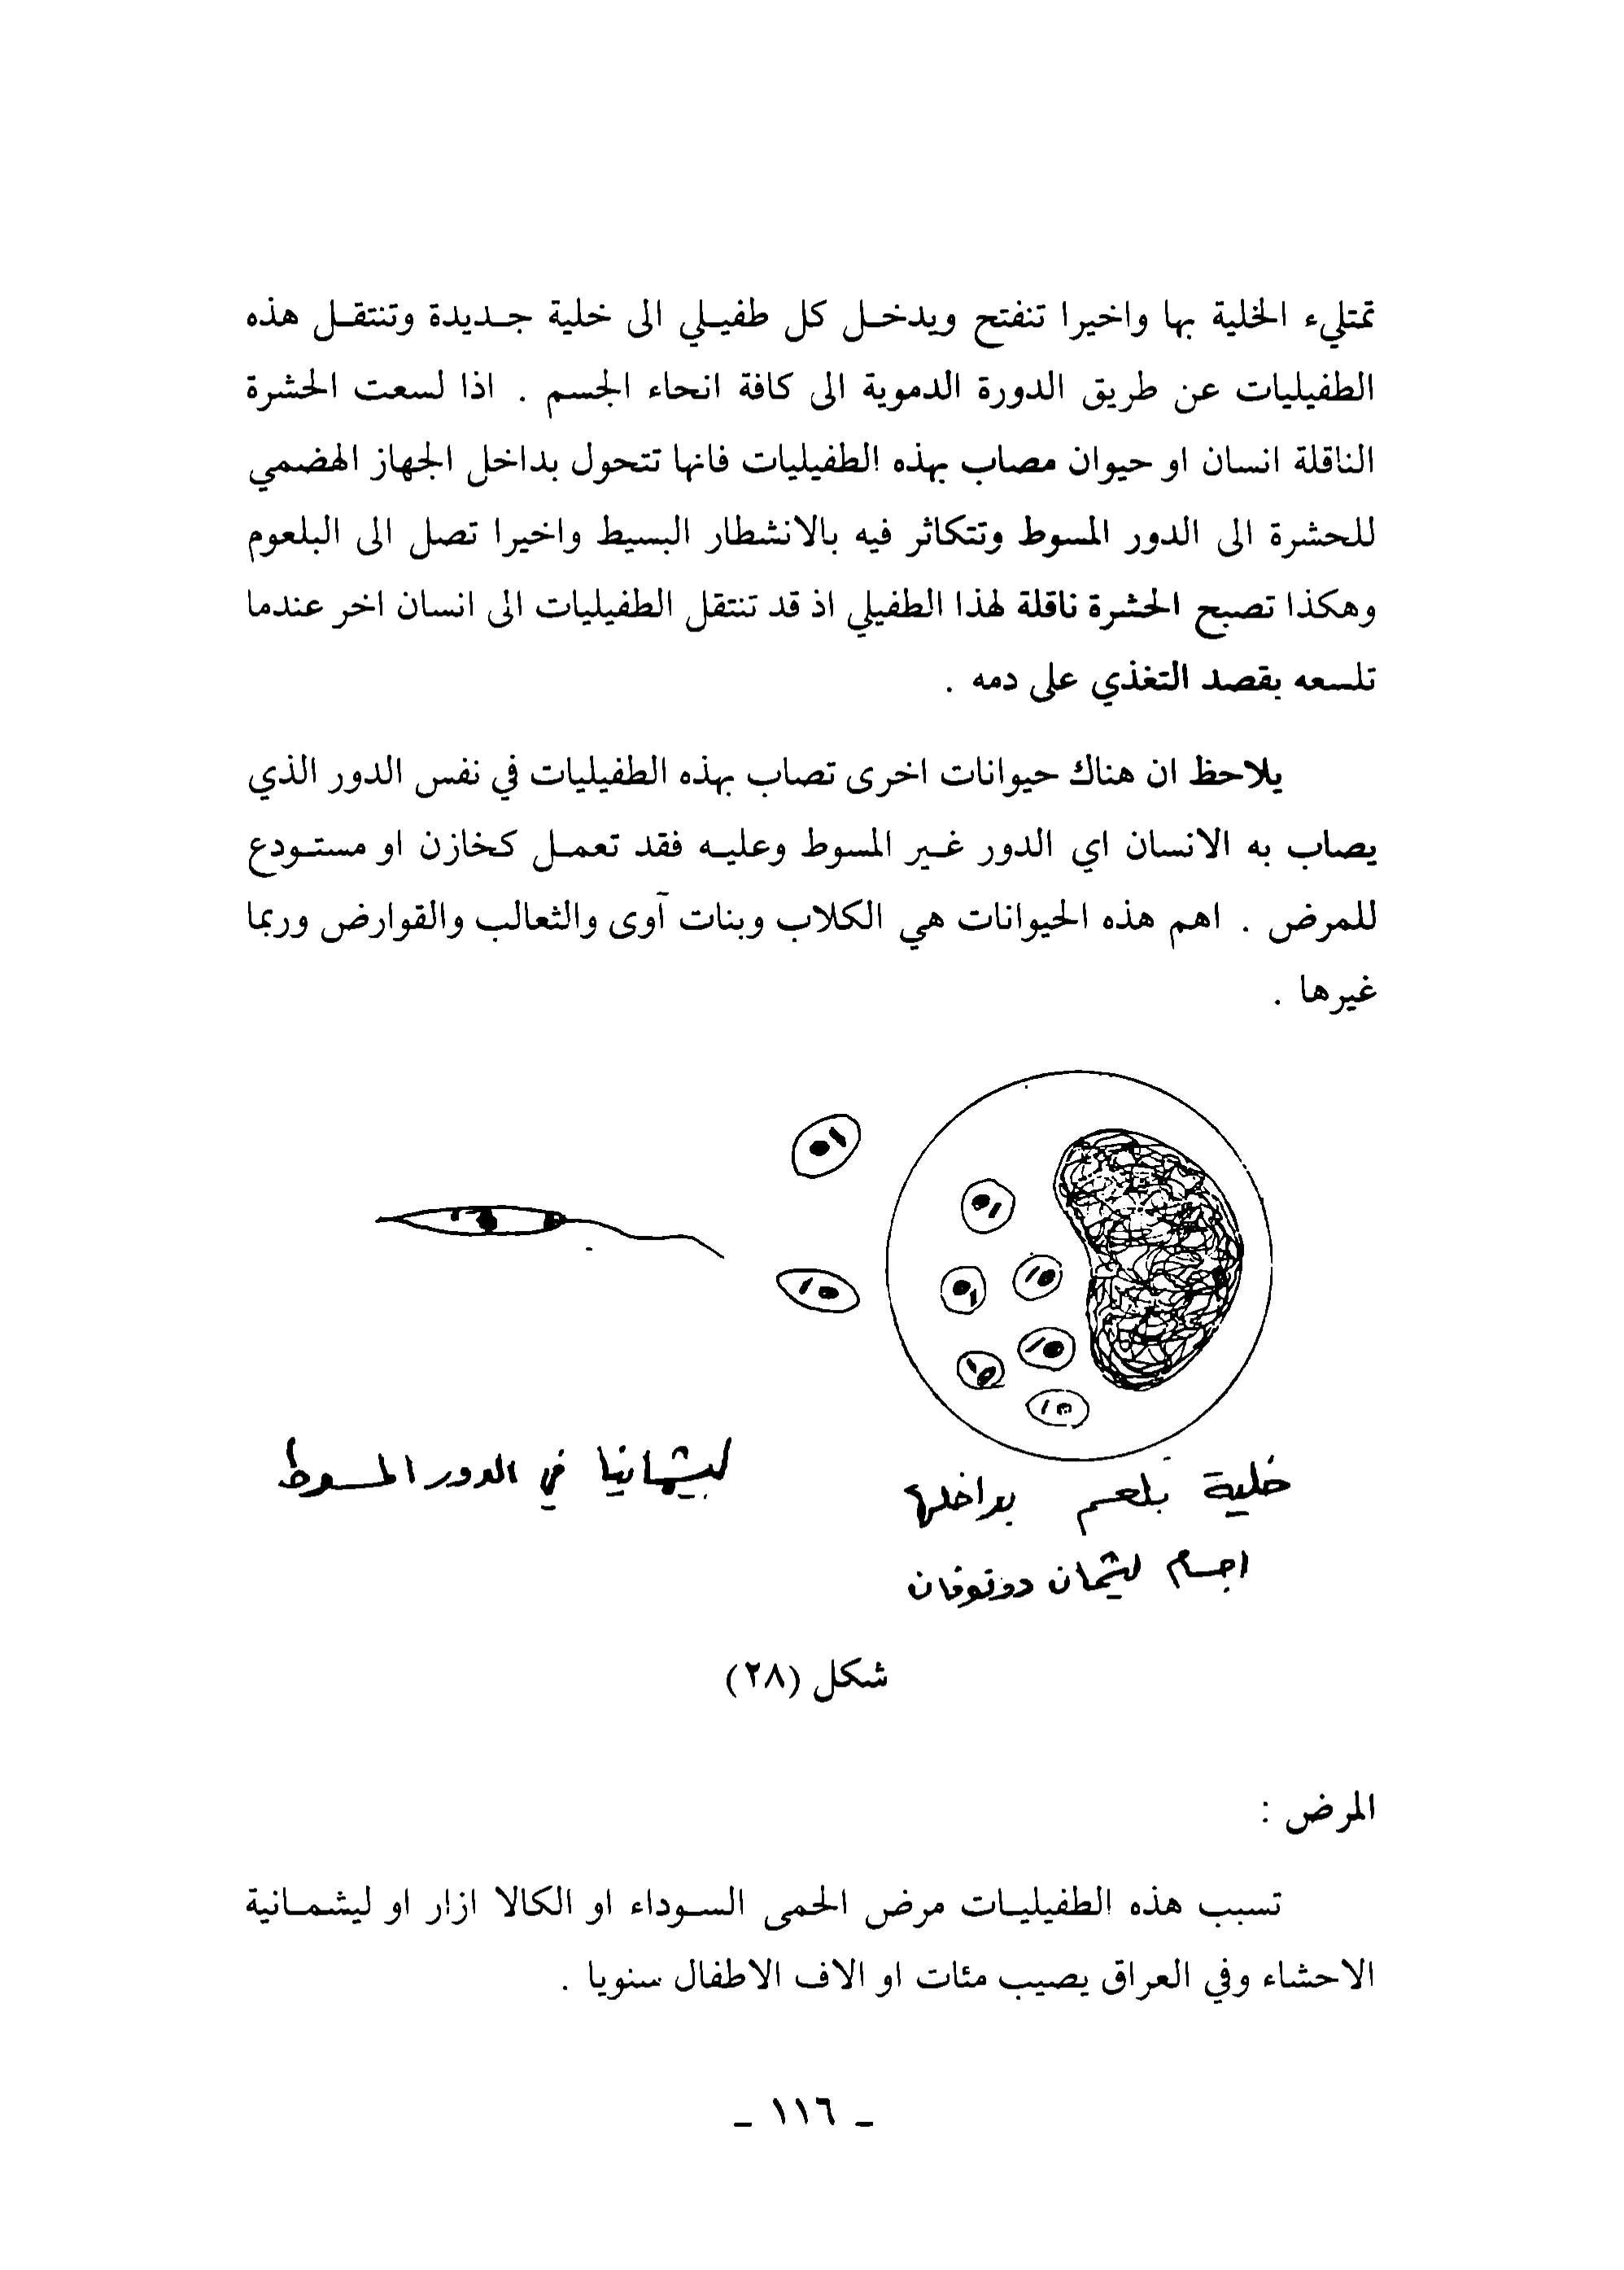 تمتليء الخلية بها واخيرا تنفتح ويدخل كل طفيلي الى خلية جديدة وتنتقل هذه
الطفيليات عن طريق الدورة الدموية الى كافة انحاء الجسم . اذا لسعت الحشرة
الناقلة انسان او حيوان مصاب بهذه الطفيليات فانها تتحول بداخل الجهاز الهضمي
للحشرة الى الدور المسوط وتتكاثر فيه بالانشطار البسيط واخيرا تصل الى البلعوم
وهكذا تصبح الحشرة ناقلة لهذا الطفيلي اذ قد تنتقل الطفيليات الى انسان اخر عندما
تلسعه بقصد التغذي على دمه .
يلاحظ ان هناك حيوانات اخرى تصاب بهذه الطفيليات في نفس الدور الذي
يصاب به الانسان اي الدور غير المسوط وعليه فقد تعمل كخازن او مستودع
للمرض . اهم هذه الحيوانات هي الكلاب وبنات آوى والثعالب والقوارض وربما
غيرها .
خلية بلعم بداخلها
اجسام ليشمان دونوفان
ليشمانيا في الدور المسوط
شكل (٢٨)
المرض :
تسبب هذه الطفيليات مرض الحمى السوداء او الكالا ازار او ليشمانية
الاحشاء وفي العراق يصيب مئات او الاف الاطفال سنويا .
ـ ١١٦ ـ